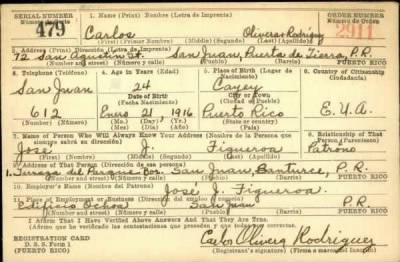 SERIAL NUMBER 1. Name (Print) Nombre (Letra de Imprenta) ORDER NUMBER
Número de Serie Número de Orden
479 Carlos Oliveras Rodríguez 2911
(First) (Primer) (Middle) (Segundo) (Last) (Apellido)
2. Address (Print) Dirección (Letra de Imprenta)
72 San Agustín St. San Juan, Puerta de Tierra, P.R.
(Number and street) (Número y calle) (Town) (Pueblo) (Barrio) PUERTO RICO
3. Telephone (Teléfono) 4. Age in Years (Edad) 5. Place of Birth (Lugar de Nacimiento) 6. Country of Citizenship (Ciudadanía)
San Juan 24 Cayey
Date of Birth City or Town
(Fecha Nacimiento) (Ciudad o Pueblo)
612 Enero 21 1916 Puerto Rico E.U.A.
(Number) (Número) (Mo.) (Day) (Yr.) (State or Country)
7. Name of Person Who Will Always Know Your Address (Nombre de la Persona que siempre sabrá su dirección) 8. Relationship of That Person (Parentesco)
José J. Figueroa Patrono
(First) (Primer) (Middle) (Segundo) (Last) (Apellido)
9. Address of That Person (Dirección de esa persona)
Parque San Juan, Santurce, P.R.
(Number and street) (Número y calle) (Town) (Pueblo) (Barrio) PUERTO RICO
10. Employer's Name (Nombre del Patrono)
José J. Figueroa.
11. Place of Employment or Business (Dirección del empleo o negocio)
Edificio Ochoa San Juan P.R.
(Number and street) (Número y calle) (Town) (Pueblo) (Barrio) PUERTO RICO
I Affirm That I Have Verified Above Answers And That They Are True.
REGISTRATION CARD
D. S. S. Form 1 Carlos Olivera Rodriguez
(Registrant's signature) (Firma)